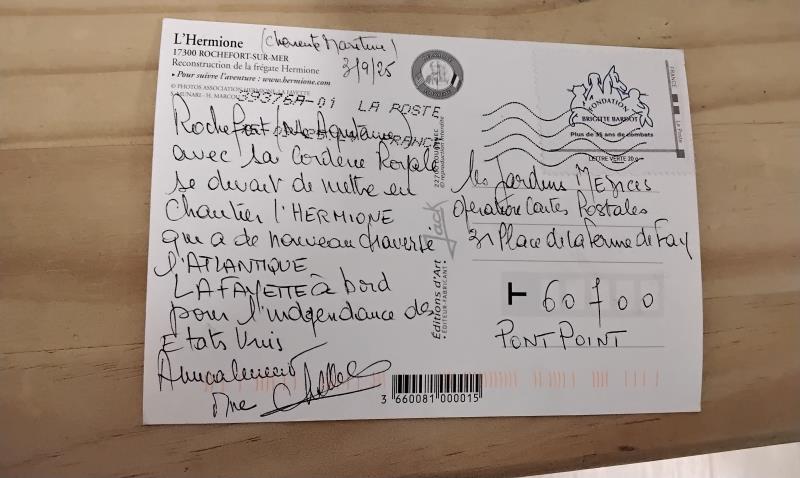 L'Hermione (Charente Maritime)
17300 ROCHEFORT-SUR-MER
Reconstruction de la frégate Hermione
• Pour suivre l'aventure : www.hermione.com
3/9/25
© PHOTOS ASSOCIATION HERMIONE LA FAYETTE
39376A-01 LA POSTE
FRANCE
Rochefort
avec sa Corderie Royale
se devait de mettre en
Chantier l'HERMIONE
qui a de nouveau traversé
l'ATLANTIQUE
LAFAYETTE à bord
pour l'indépendance des
Etats Unis
Amicalement
Mme
Editions d'Art
Jack
ÉDITEUR-FABRICANT
© reproduction interdite
3 660081 000015
FONDATION
BRIGITTE BARDOT
Plus de 35 ans de combats
LETTRE VERTE 20 g
FRANCE
La Poste
Les Jardins MEDICIS
Opération Cartes Postales
31 Place de la Ferme de Fay
60700
PONTPOINT